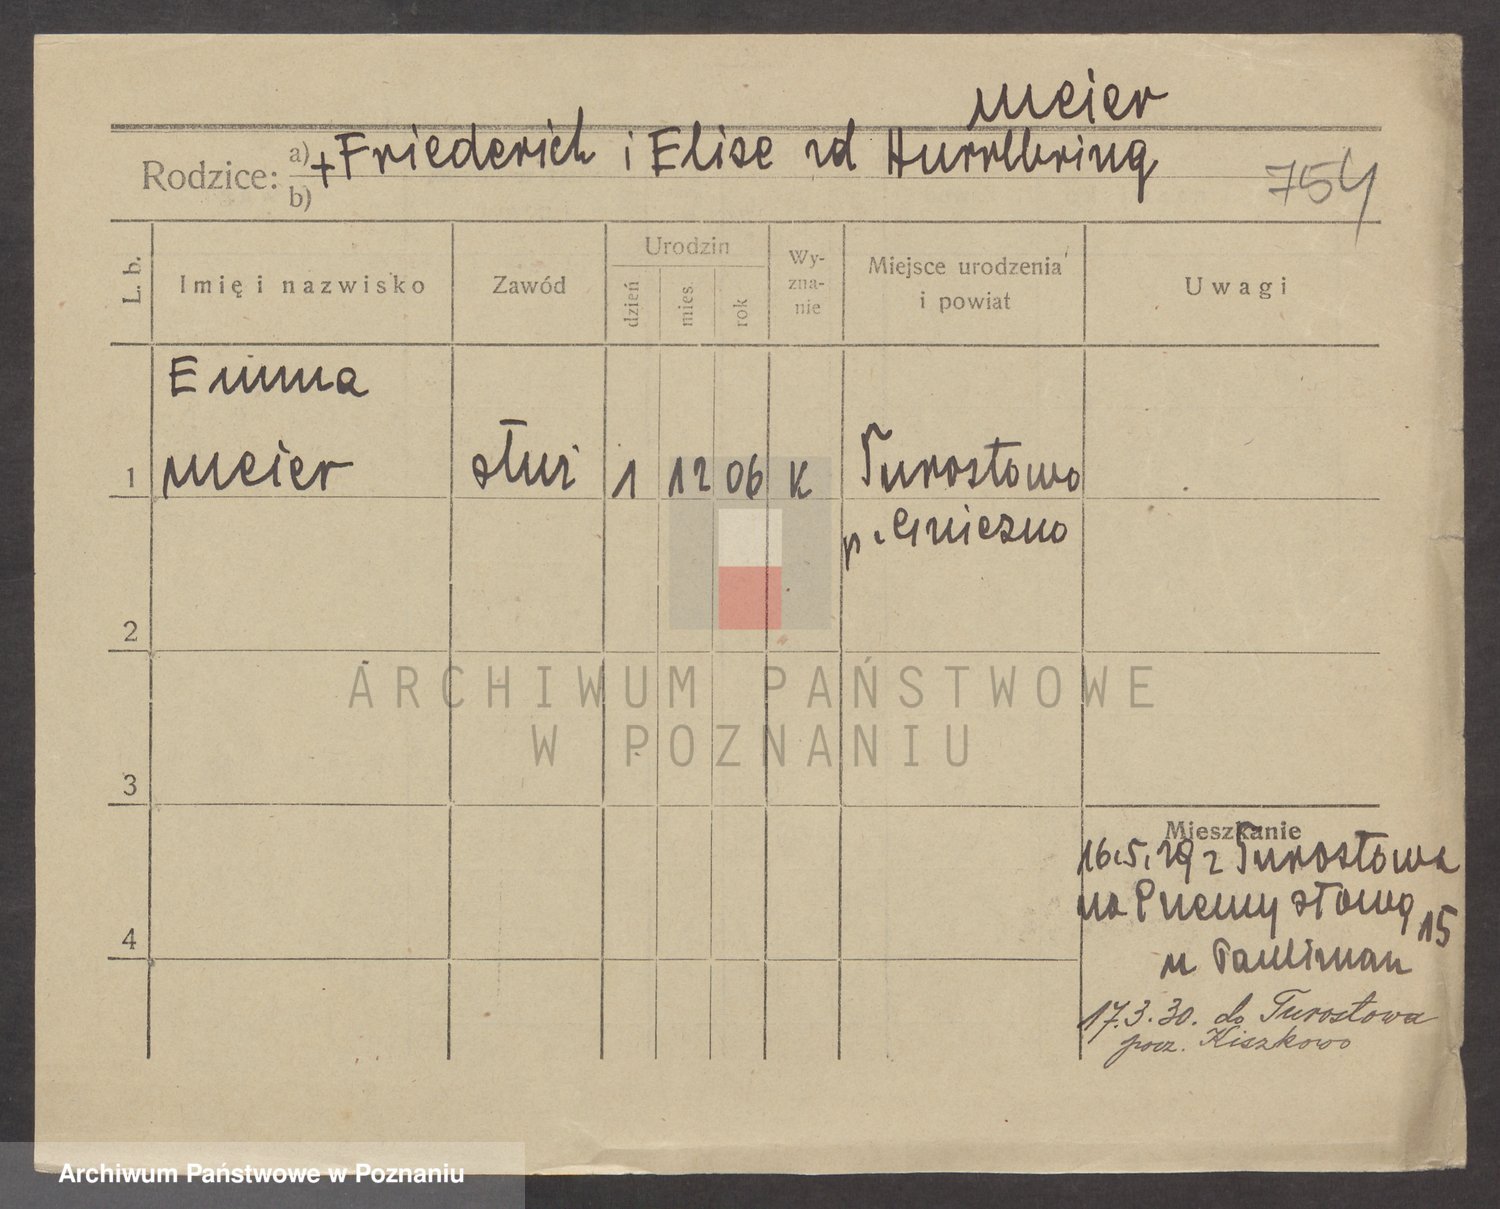 Meier
Rodzice: a) + Friederich i Elise zd
b)
754
L. b.
Imię i nazwisko
Zawód
Urodzin
dzień
mies.
rok
Wy-
zna-
nie
Miejsce urodzenia
i powiat
Uwagi
Emma
1 Meier służ 1 12 06 K Turostowo
p. Gniezno
2
3
4
Mieszkanie
16.5.29 z Turostowa
na Przemysłową 15
u
17.3.30. do Turostowa
pocz. Kiszkowo
ARCHIWUM PAŃSTWOWE
W POZNANIU
Archiwum Państwowe w Poznaniu